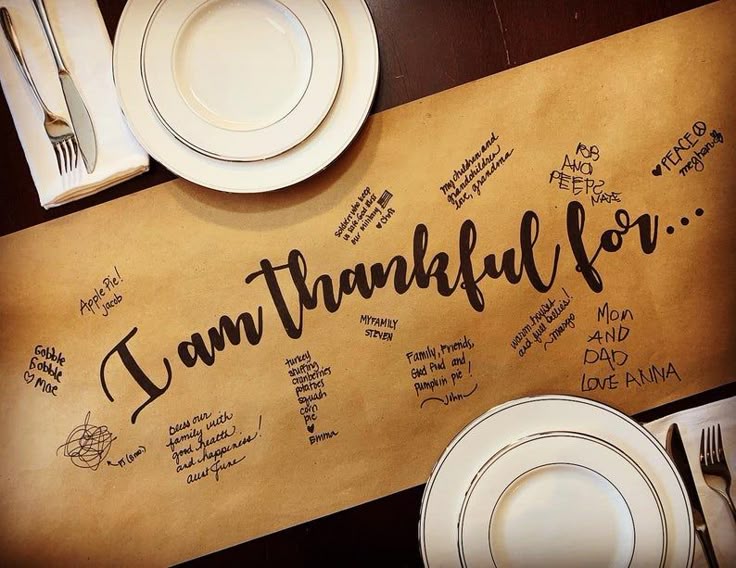 I am thankful for...
Soldiers who keep
us safe. God Bless
our military
♥ Chris
My children and
grandchildren,
Love, grandma
JOB
AND
PEEPS
NATE
♥ PEACE
meghan
Apple Pie!
Jacob
Gobble
Bobble
♡ Mae
TJ (8mo)
Bless our
family with
good health
and happiness!
aunt June
turkey
stuffing
cranberries
potatoes
squash
corn
pie
♥
Emma
MY FAMILY
STEVEN
Family, Friends,
Good Food and
pumpkin pie!
~John~
warm houses
and full bellies!
~margo
MOM
AND
DAD
LOVE ANNA